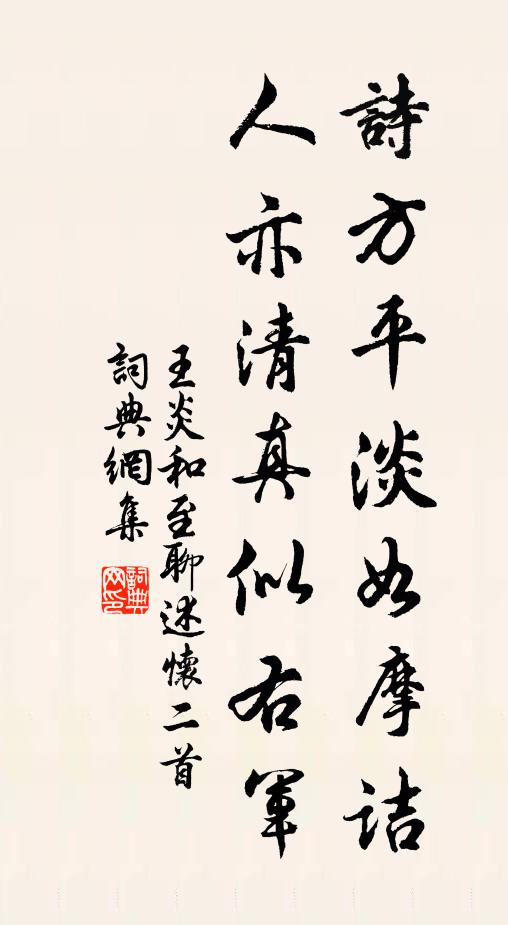 詩方平淡如摩詰
人亦清真似右軍
王炎和至聊述懷二首
詞典網集
詞典
网印